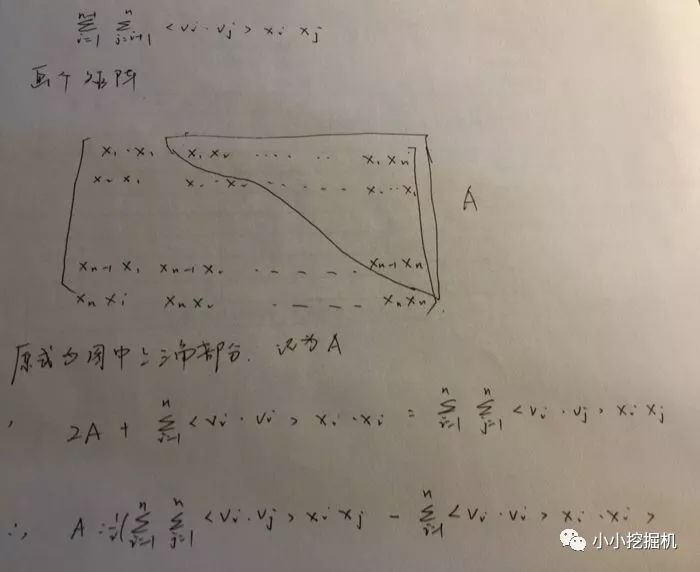 n-1 Σ i=1 n Σ j=i+1 <vi · vj> xi xj
画个矩阵
x1 · x1 x1 x2 .... .. x1 xn
x2 x1 x2 · x2 - - - - x2 · xn
A
xn-1 x1 xn-1 x2 - - - - xn-1 xn
xn x1 xn x2 - - - - xn xn
原式为图中上三角部分. 记为A
2A + n Σ i=1 <vi · vi> xi · xi = n Σ i=1 n Σ j=1 <vi · vj> xi xj
∴ A = ½( n Σ i=1 n Σ j=1 <vi · vj> xi xj - n Σ i=1 <vi · vi> xi · xi >
小小挖掘机